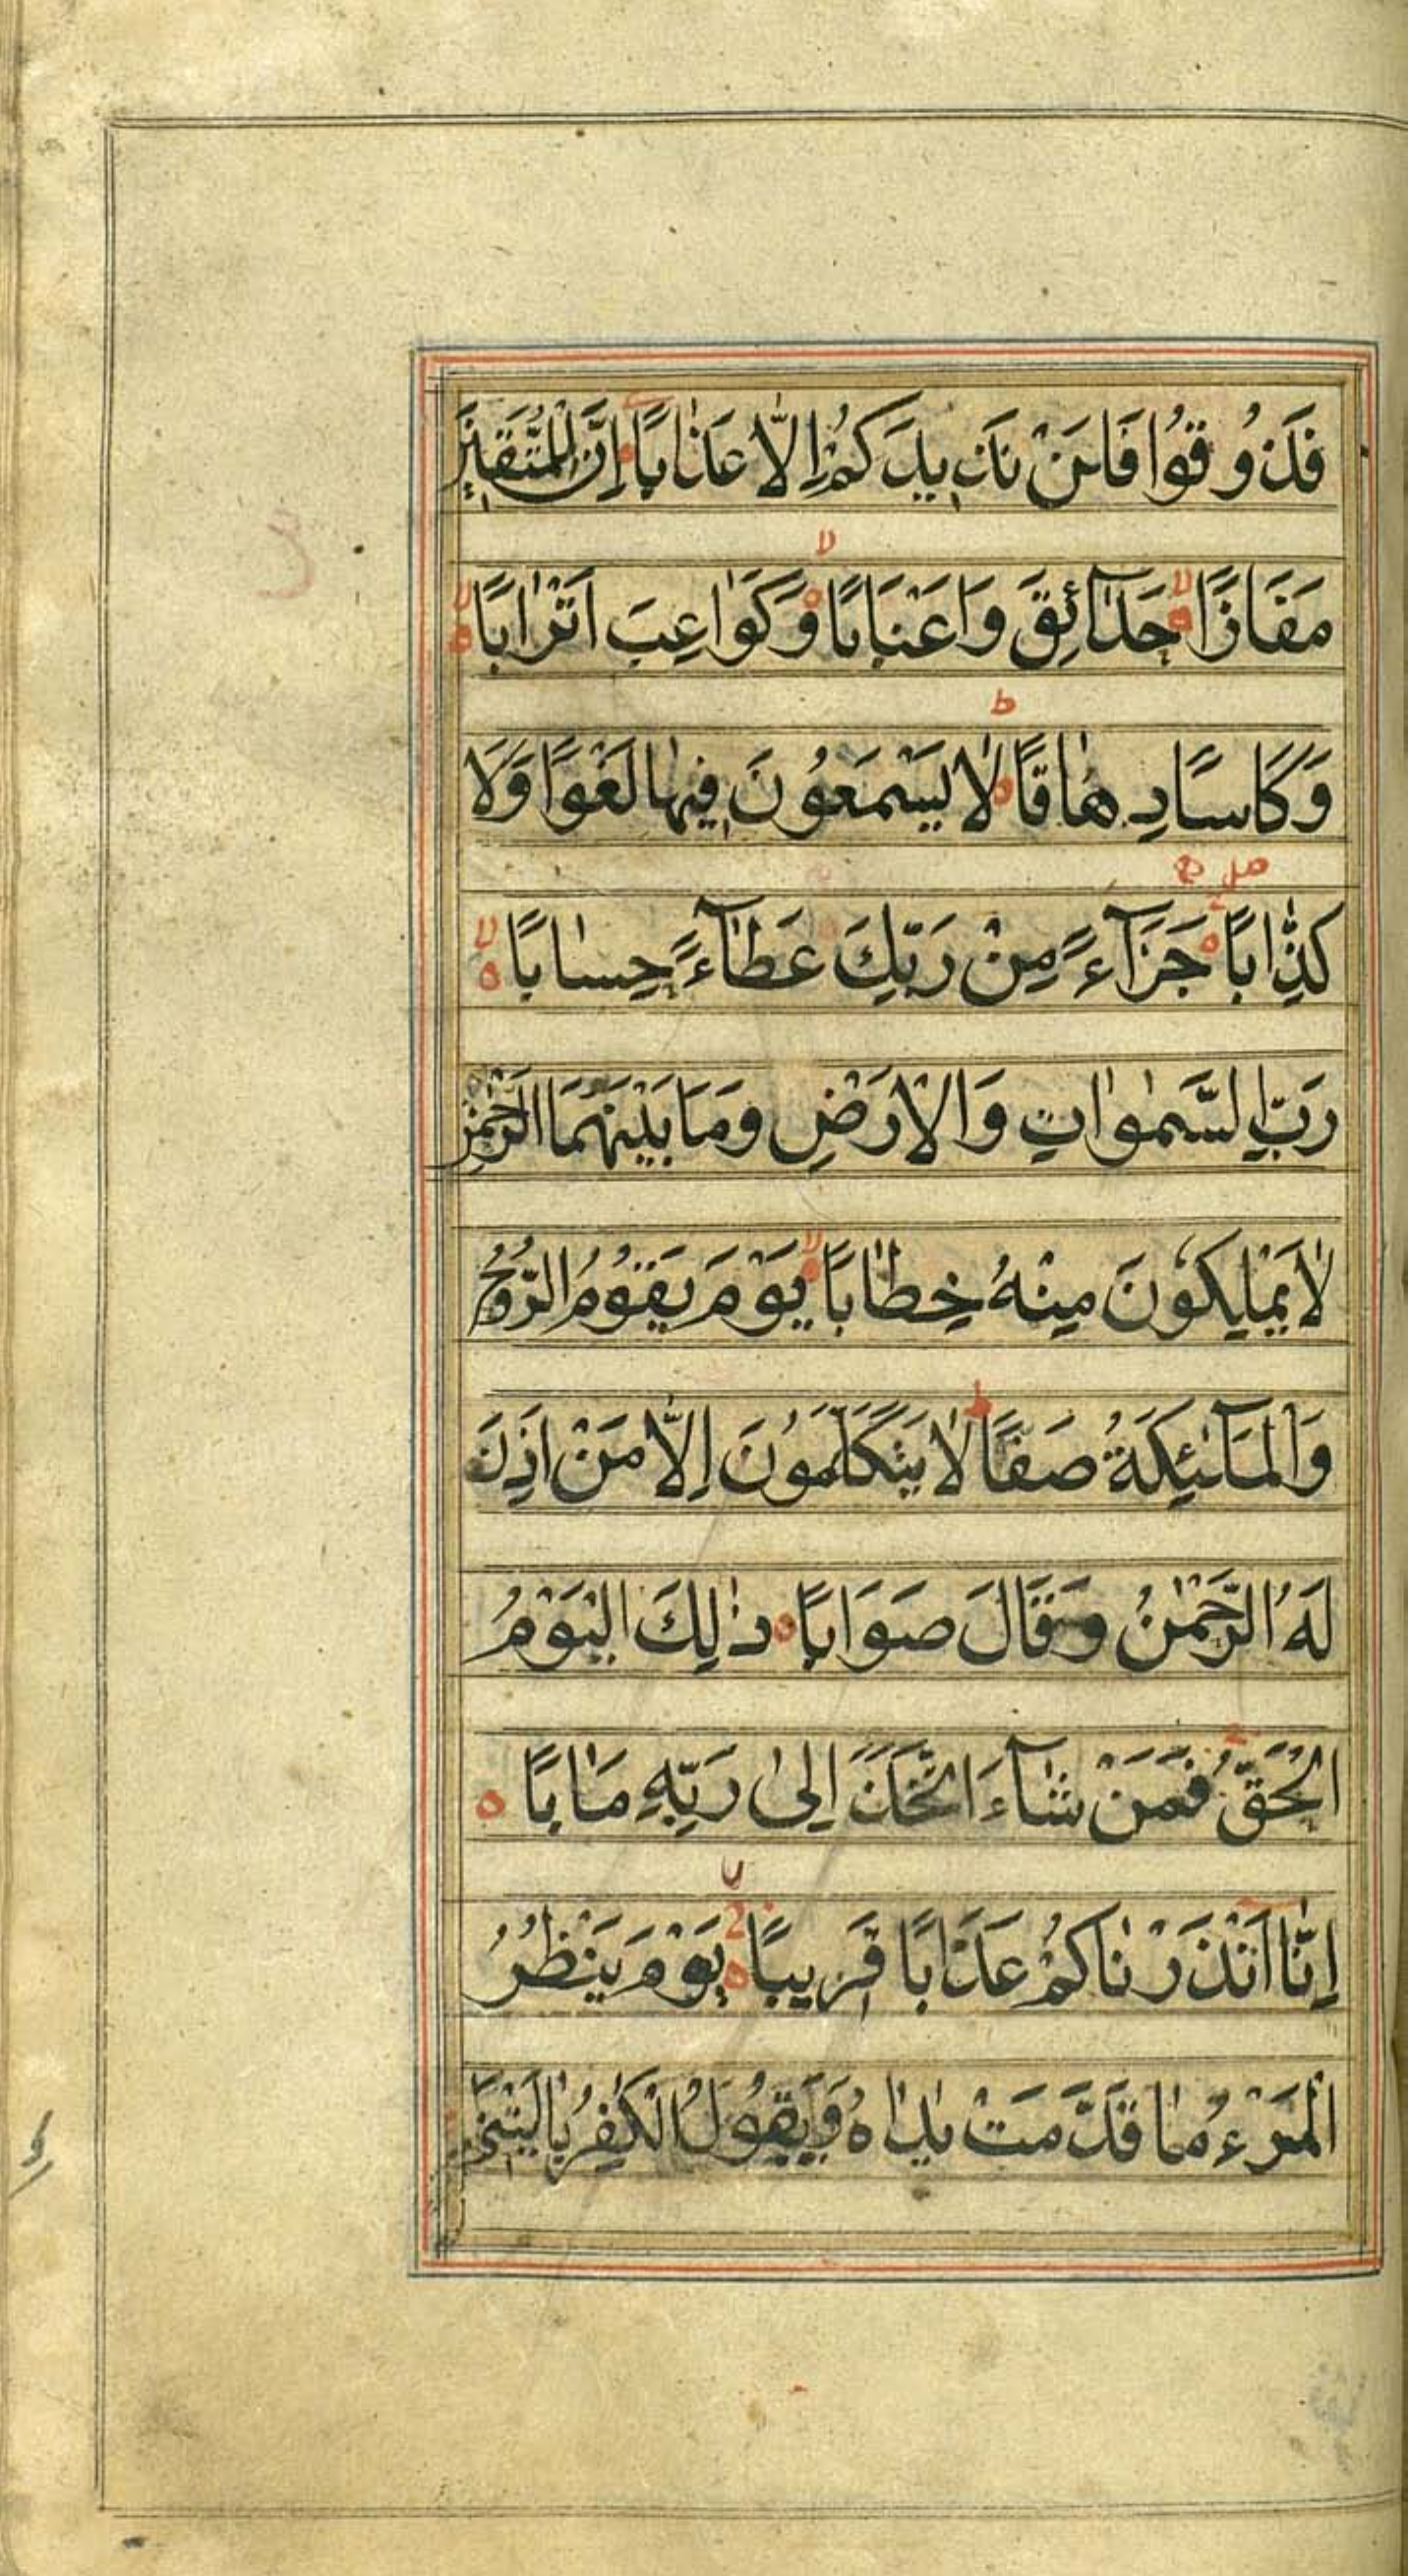 فَذُوقُوا فَلَنْ نَزِيدَكُمْ إِلَّا عَذَابًا إِنَّ لِلْمُتَّقِينَ
مَفَازًا حَدَآئِقَ وَاَعْنَابًا وَكَوَاعِبَ اَتْرَابًا
وَكَاسًا دِهَاقًا لَا يَسْمَعُونَ فِيهَا لَغْوًا وَلَا
كِذَّابًا جَزَآءً مِنْ رَبِّكَ عَطَآءً حِسَابًا
رَبِّ السَّمٰوَاتِ وَالْاَرْضِ وَمَا بَيْنَهُمَا الرَّحْمٰنِ
لَا يَمْلِكُونَ مِنْهُ خِطَابًا يَوْمَ يَقُومُ الرُّوحُ
وَالْمَلٰٓئِكَةُ صَفًّا لَا يَتَكَلَّمُونَ اِلَّا مَنْ اَذِنَ
لَهُ الرَّحْمٰنُ وَقَالَ صَوَابًا ذٰلِكَ الْيَوْمُ
الْحَقُّ فَمَنْ شَآءَ اتَّخَذَ اِلٰى رَبِّهِ مَاٰبًا
اِنَّا اَنْذَرْنَاكُمْ عَذَابًا قَرِيبًا يَوْمَ يَنْظُرُ
الْمَرْءُ مَا قَدَّمَتْ يَدَاهُ وَيَقُولُ الْكٰفِرُ يَا لَيْتَنِي